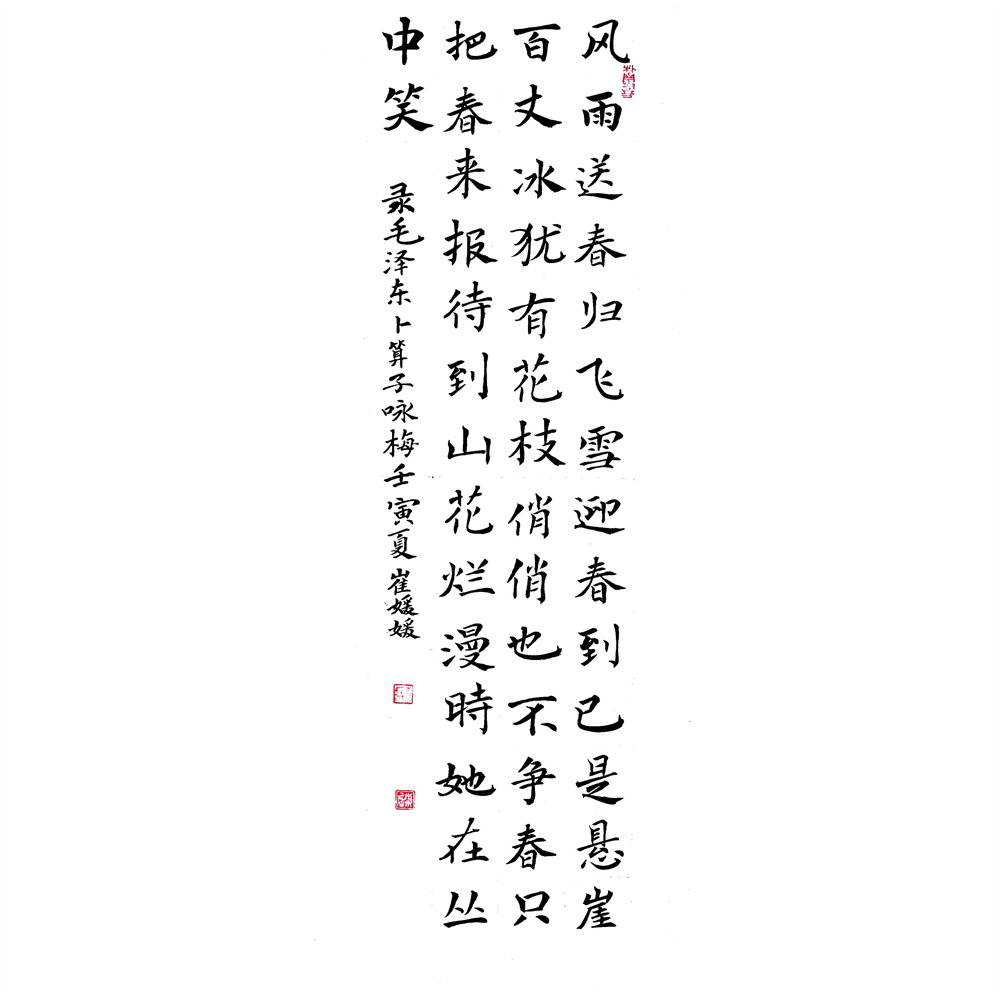 风雨送春归飞雪迎春到已是悬崖
百丈冰犹有花枝俏俏也不争春只
把春来报待到山花烂漫時她在丛
中笑
录毛泽东卜算子咏梅壬寅夏崔媛媛